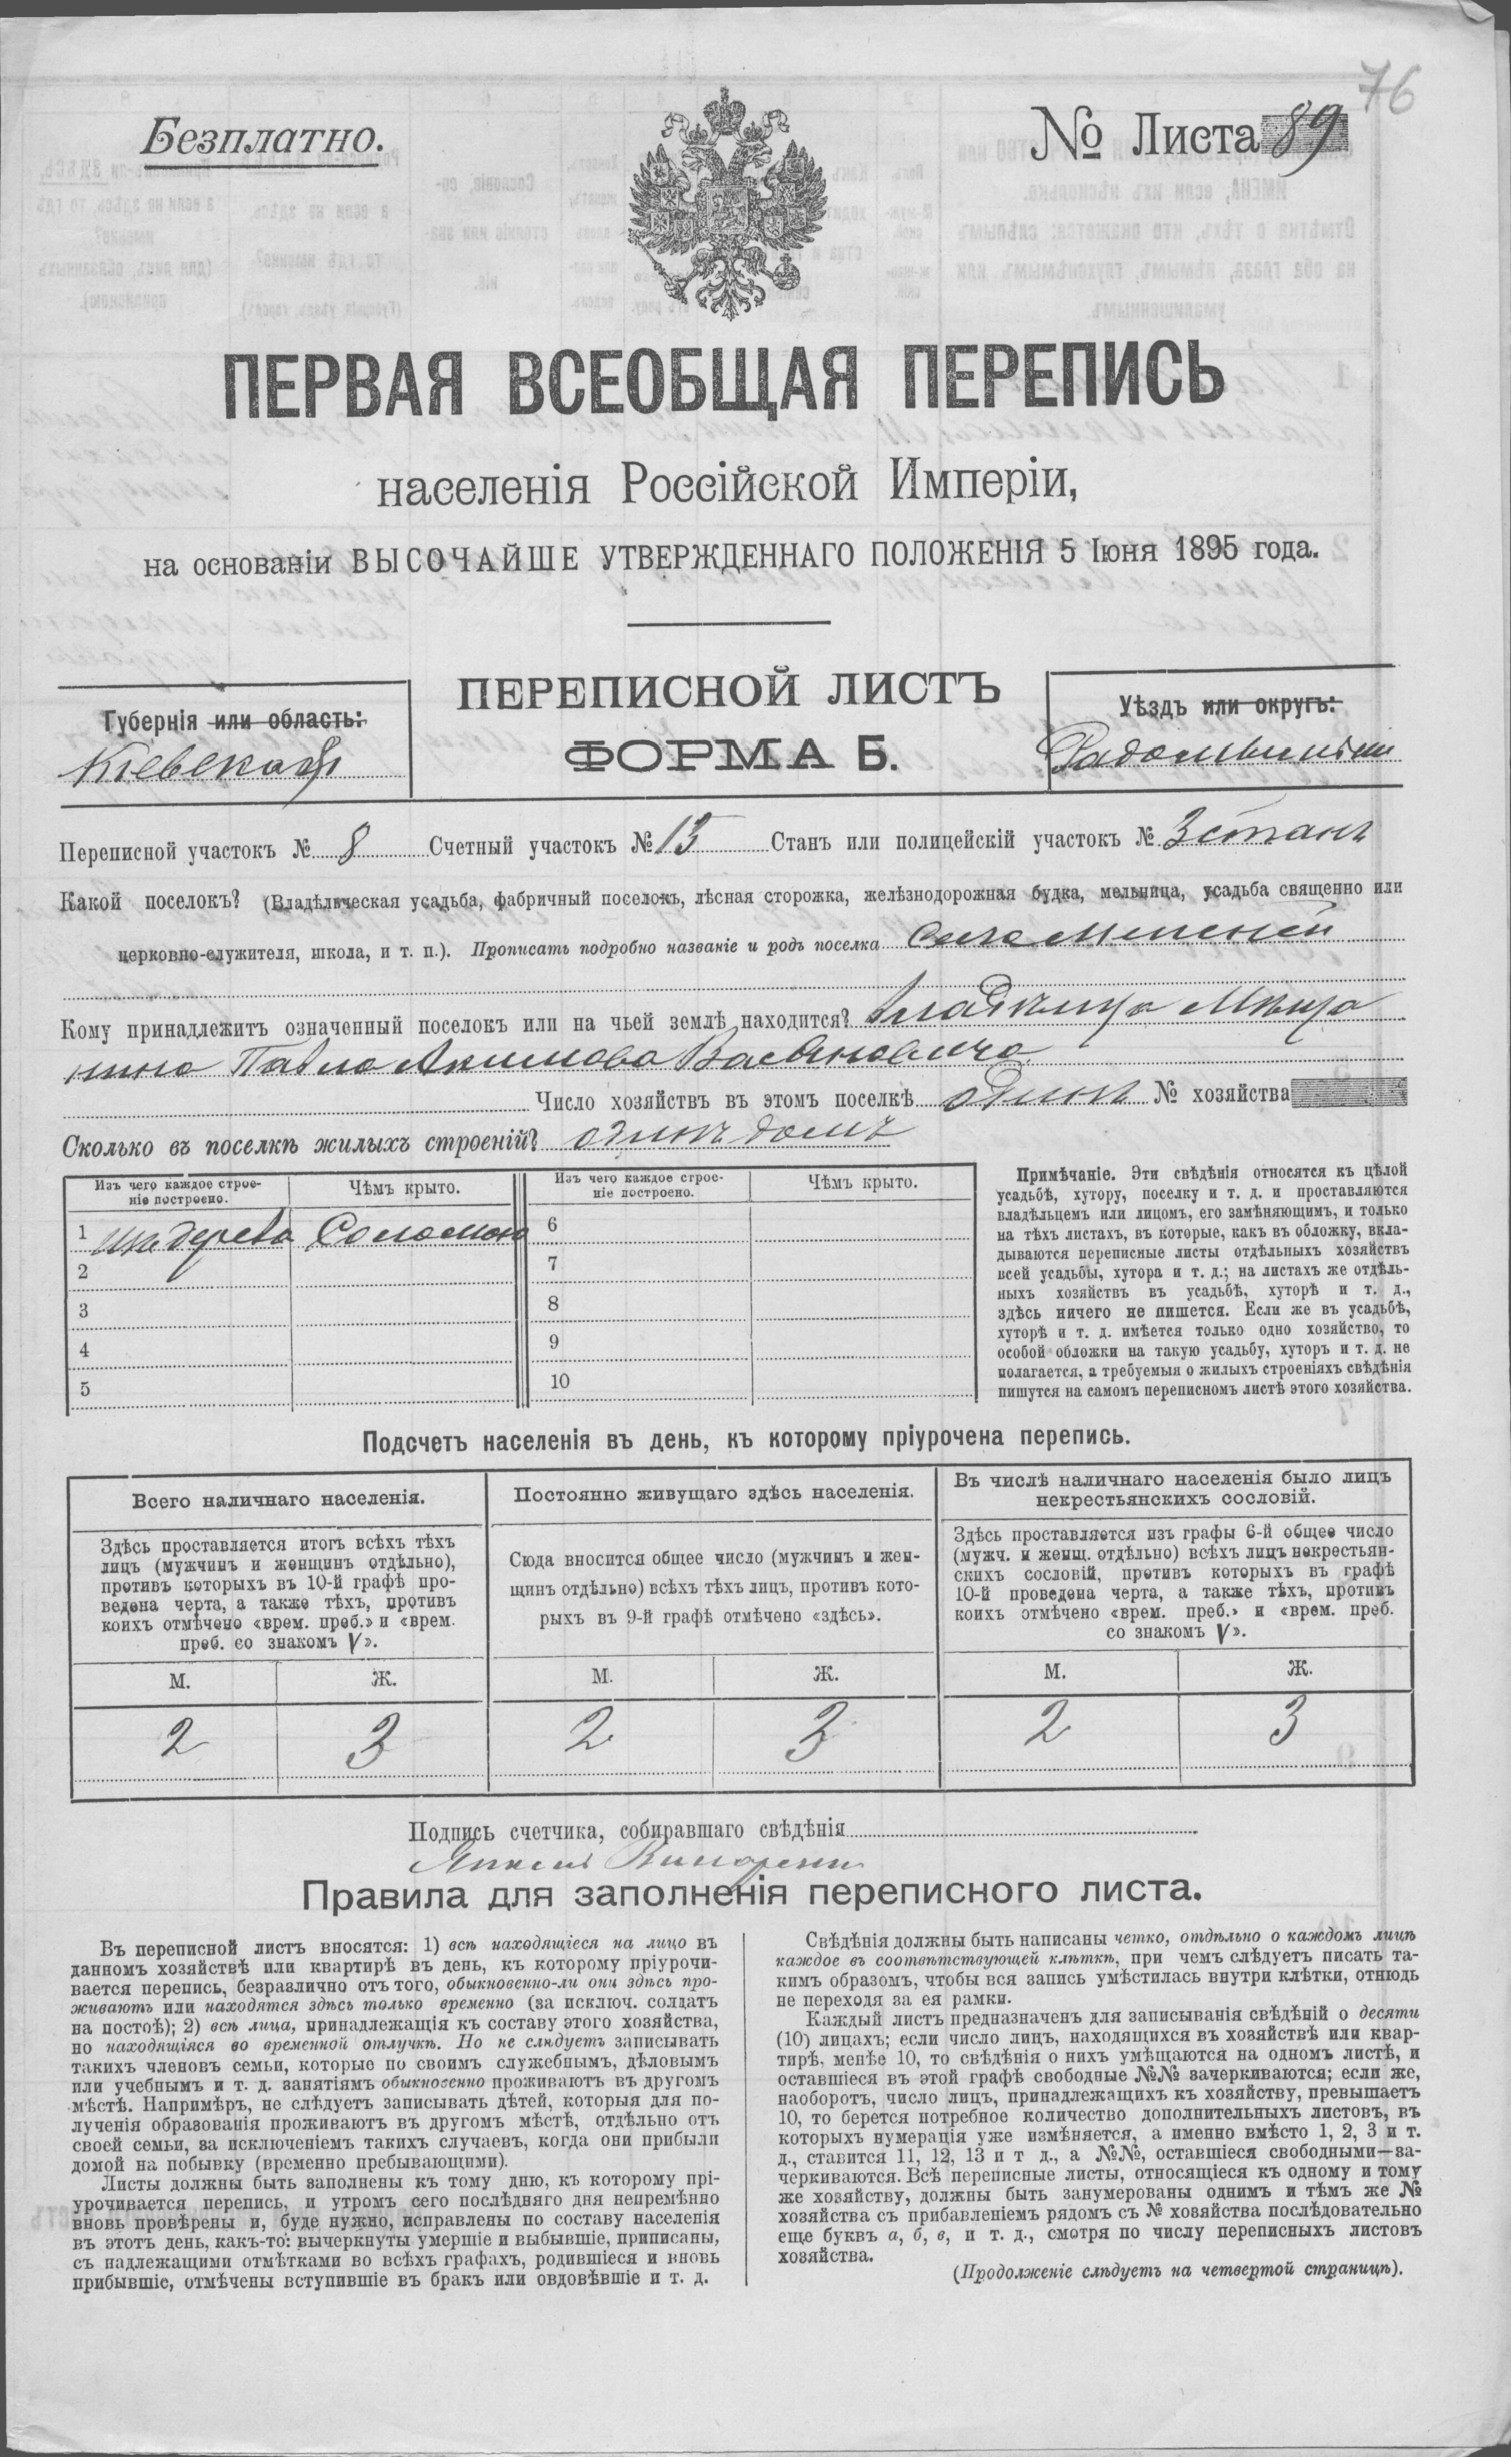 76
Безплатно.
№ Листа 89
ПЕРВАЯ ВСЕОБЩАЯ ПЕРЕПИСЬ
населенія Россійской Имперіи,
на основаніи ВЫСОЧАЙШЕ УТВЕРЖДЕННАГО ПОЛОЖЕНІЯ 5 Іюня 1895 года.
ПЕРЕПИСНОЙ ЛИСТЪ
ФОРМА Б.
Губернія или область:
Кіевская
Уѣздъ или округъ:
Радомысльскій
Переписной участокъ № 8 Счетный участокъ № 15 Станъ или полицейскій участокъ № 3 станъ
Какой поселокъ? (Владѣльческая усадьба, фабричный поселокъ, лѣсная сторожка, желѣзнодорожная будка, мельница, усадьба священно или
церковно-служителя, школа, и т. п.). Прописать подробно названіе и родъ поселка Село
Кому принадлежитъ означенный поселокъ или на чьей землѣ находится? Владѣльца Мѣща
нина Павла Акимова
Число хозяйствъ въ этомъ поселкѣ одинъ № хозяйства
Сколько въ поселкѣ жилыхъ строеній? одинъ домъ
Изъ чего каждое строе-
ніе построено.
Чѣмъ крыто.
Изъ чего каждое строе-
ніе построено.
Чѣмъ крыто.
1 изъ дерева Соломою 6
2 7
3 8
4 9
5 10
Примѣчаніе. Эти свѣдѣнія относятся къ цѣлой
усадьбѣ, хутору, поселку и т. д. и проставляются
владѣльцемъ или лицомъ, его замѣняющимъ, и только
на тѣхъ листахъ, въ которые, какъ въ обложку, вкла-
дываются переписные листы отдѣльныхъ хозяйствъ
всей усадьбы, хутора и т. д.; на листахъ же отдѣль-
ныхъ хозяйствъ въ усадьбѣ, хуторѣ и т. д.,
здѣсь ничего не пишется. Если же въ усадьбѣ,
хуторѣ и т. д. имѣется только одно хозяйство, то
особой обложки на такую усадьбу, хуторъ и т. д. не
полагается, а требуемыя о жилыхъ строеніяхъ свѣдѣнія
пишутся на самомъ переписномъ листѣ этого хозяйства.
Подсчетъ населенія въ день, къ которому пріурочена перепись.
Всего наличнаго населенія.
Здѣсь проставляется итогъ всѣхъ тѣхъ
лицъ (мужчинъ и женщинъ отдѣльно),
противъ которыхъ въ 10-й графѣ про-
ведена черта, а также тѣхъ, противъ
коихъ отмѣчено «врем. преб.» и «врем.
преб. со знакомъ V».
М. Ж.
2 3
Постоянно живущаго здѣсь населенія.
Сюда вносится общее число (мужчинъ и жен-
щинъ отдѣльно) всѣхъ тѣхъ лицъ, противъ кото-
рыхъ въ 9-й графѣ отмѣчено «здѣсь».
М. Ж.
2 3
Въ числѣ наличнаго населенія было лицъ
некрестьянскихъ сословій.
Здѣсь проставляется изъ графы 6-й общее число
(мужч. и женщ. отдѣльно) всѣхъ лицъ некрестьян-
скихъ сословій, противъ которыхъ въ графѣ
10-й проведена черта, а также тѣхъ, противъ
коихъ отмѣчено «врем. преб.» и «врем. преб.
со знакомъ V».
М. Ж.
2 3
Подпись счетчика, собиравшаго свѣдѣнія
Правила для заполненія переписного листа.
Въ переписной листъ вносятся: 1) всѣ находящіеся на лицо въ
данномъ хозяйствѣ или квартирѣ въ день, къ которому пріурочи-
вается перепись, безразлично отъ того, обыкновенно-ли они здѣсь про-
живаютъ или находятся здѣсь только временно (за исключ. солдатъ
на постоѣ); 2) всѣ лица, принадлежащія къ составу этого хозяйства,
но находящіяся во временной отлучкѣ. Но не слѣдуетъ записывать
такихъ членовъ семьи, которые по своимъ служебнымъ, дѣловымъ
или учебнымъ и т. д. занятіямъ обыкновенно проживаютъ въ другомъ
мѣстѣ. Напримѣръ, не слѣдуетъ записывать дѣтей, которыя для по-
лученія образованія проживаютъ въ другомъ мѣстѣ, отдѣльно отъ
своей семьи, за исключеніемъ такихъ случаевъ, когда они прибыли
домой на побывку (временно пребывающими).
Листы должны быть заполнены къ тому дню, къ которому прі-
урочивается перепись, и утромъ сего послѣдняго дня непремѣнно
вновь провѣрены и, буде нужно, исправлены по составу населенія
въ этотъ день, какъ-то: вычеркнуты умершіе и выбывшіе, приписаны,
съ надлежащими отмѣтками во всѣхъ графахъ, родившіеся и вновь
прибывшіе, отмѣчены вступившіе въ бракъ или овдовѣвшіе и т. д.
Свѣдѣнія должны быть написаны четко, отдѣльно о каждомъ лицѣ
каждое въ соотвѣтствующей клѣткѣ, при чемъ слѣдуетъ писать та-
кимъ образомъ, чтобы вся запись умѣстилась внутри клѣтки, отнюдь
не переходя за ея рамки.
Каждый листъ предназначенъ для записыванія свѣдѣній о десяти
(10) лицахъ; если число лицъ, находящихся въ хозяйствѣ или квар-
тирѣ, менѣе 10, то свѣдѣнія о нихъ умѣщаются на одномъ листѣ, и
оставшіеся въ этой графѣ свободные №№ зачеркиваются; если же,
наоборотъ, число лицъ, принадлежащихъ къ хозяйству, превышаетъ
10, то берется потребное количество дополнительныхъ листовъ, въ
которыхъ нумерація уже измѣняется, а именно вмѣсто 1, 2, 3 и т.
д., ставится 11, 12, 13 и т д., а №№, оставшіеся свободными—за-
черкиваются. Всѣ переписные листы, относящіеся къ одному и тому
же хозяйству, должны быть занумерованы однимъ и тѣмъ же №
хозяйства съ прибавленіемъ рядомъ съ № хозяйства послѣдовательно
еще буквъ а, б, в, и т. д., смотря по числу переписныхъ листовъ
хозяйства.
(Продолженіе слѣдуетъ на четвертой страницѣ).